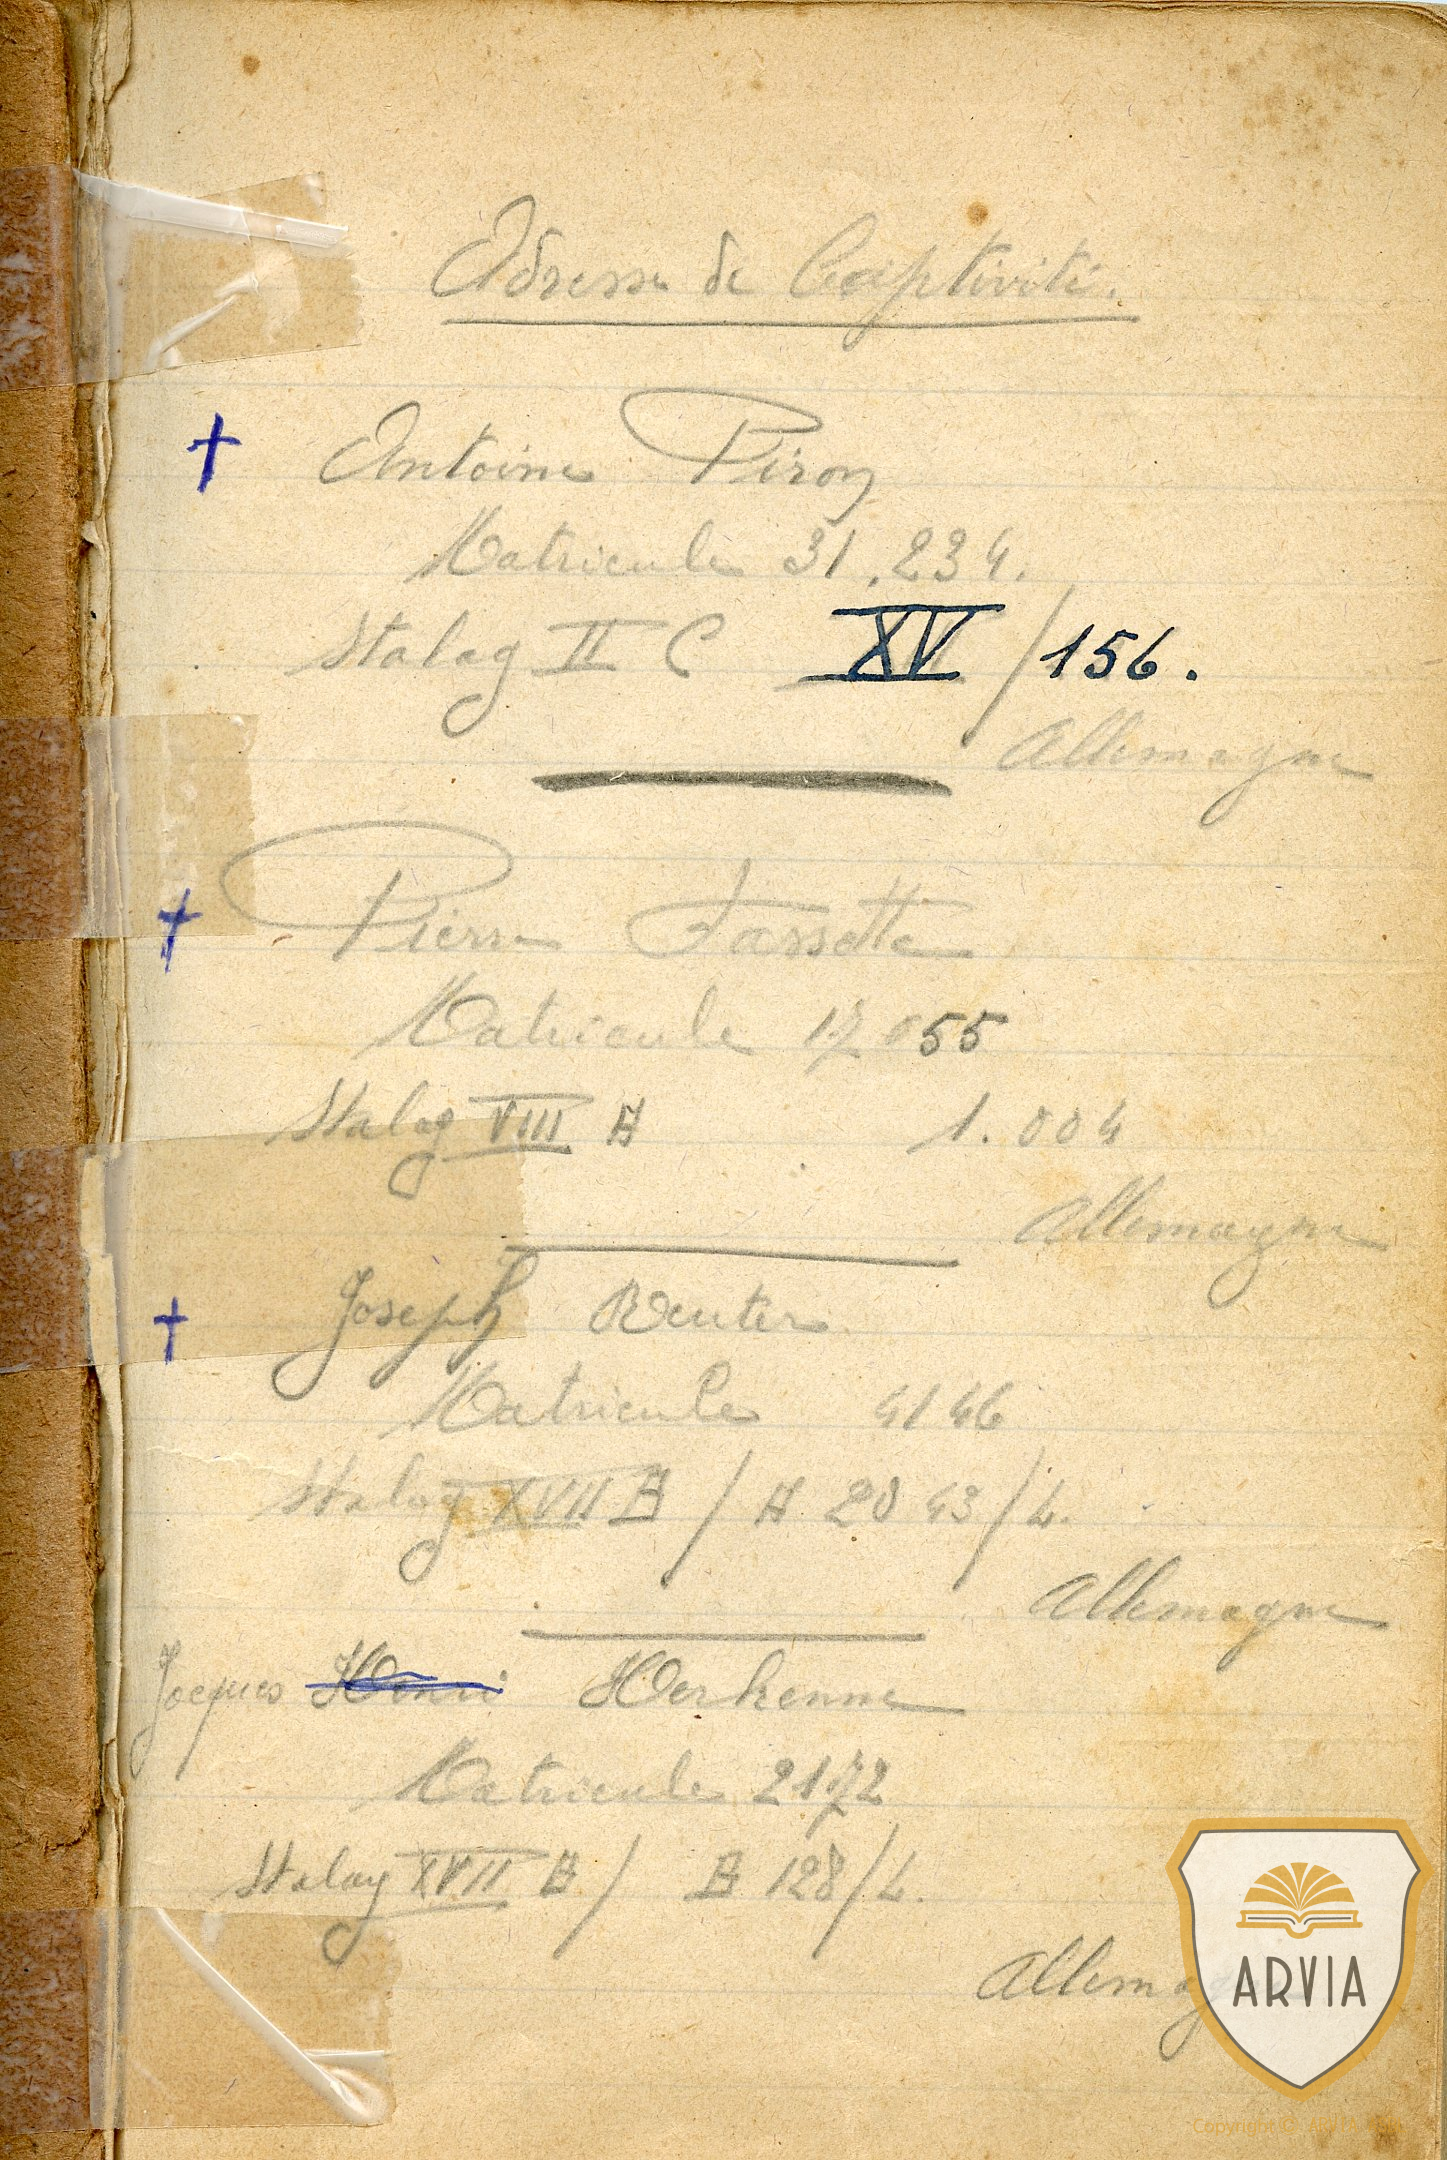 Adresse de Captivité.
† Antoine Piron
Matricule 31.234.
Stalag II C XV / 156.
Allemagne
† Pierre Fassotte
Matricule 17055
Stalag VIII A 1.004
Allemagne
† Joseph Reuter
Matricule 4146
Stalag XVII B / A 2043/L.
Allemagne
Jacques Henri Herkenne
Matricule 2172
Stalag XVII B / B 128/L.
Allemagne
ARVIA